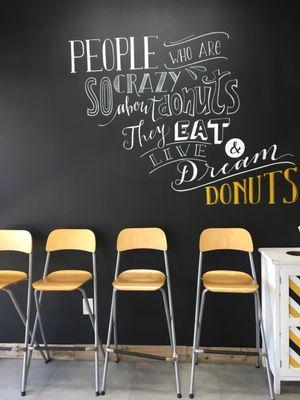 PEOPLE WHO ARE
SO CRAZY
about donuts
They EAT
LIVE &
Dream
DONUTS